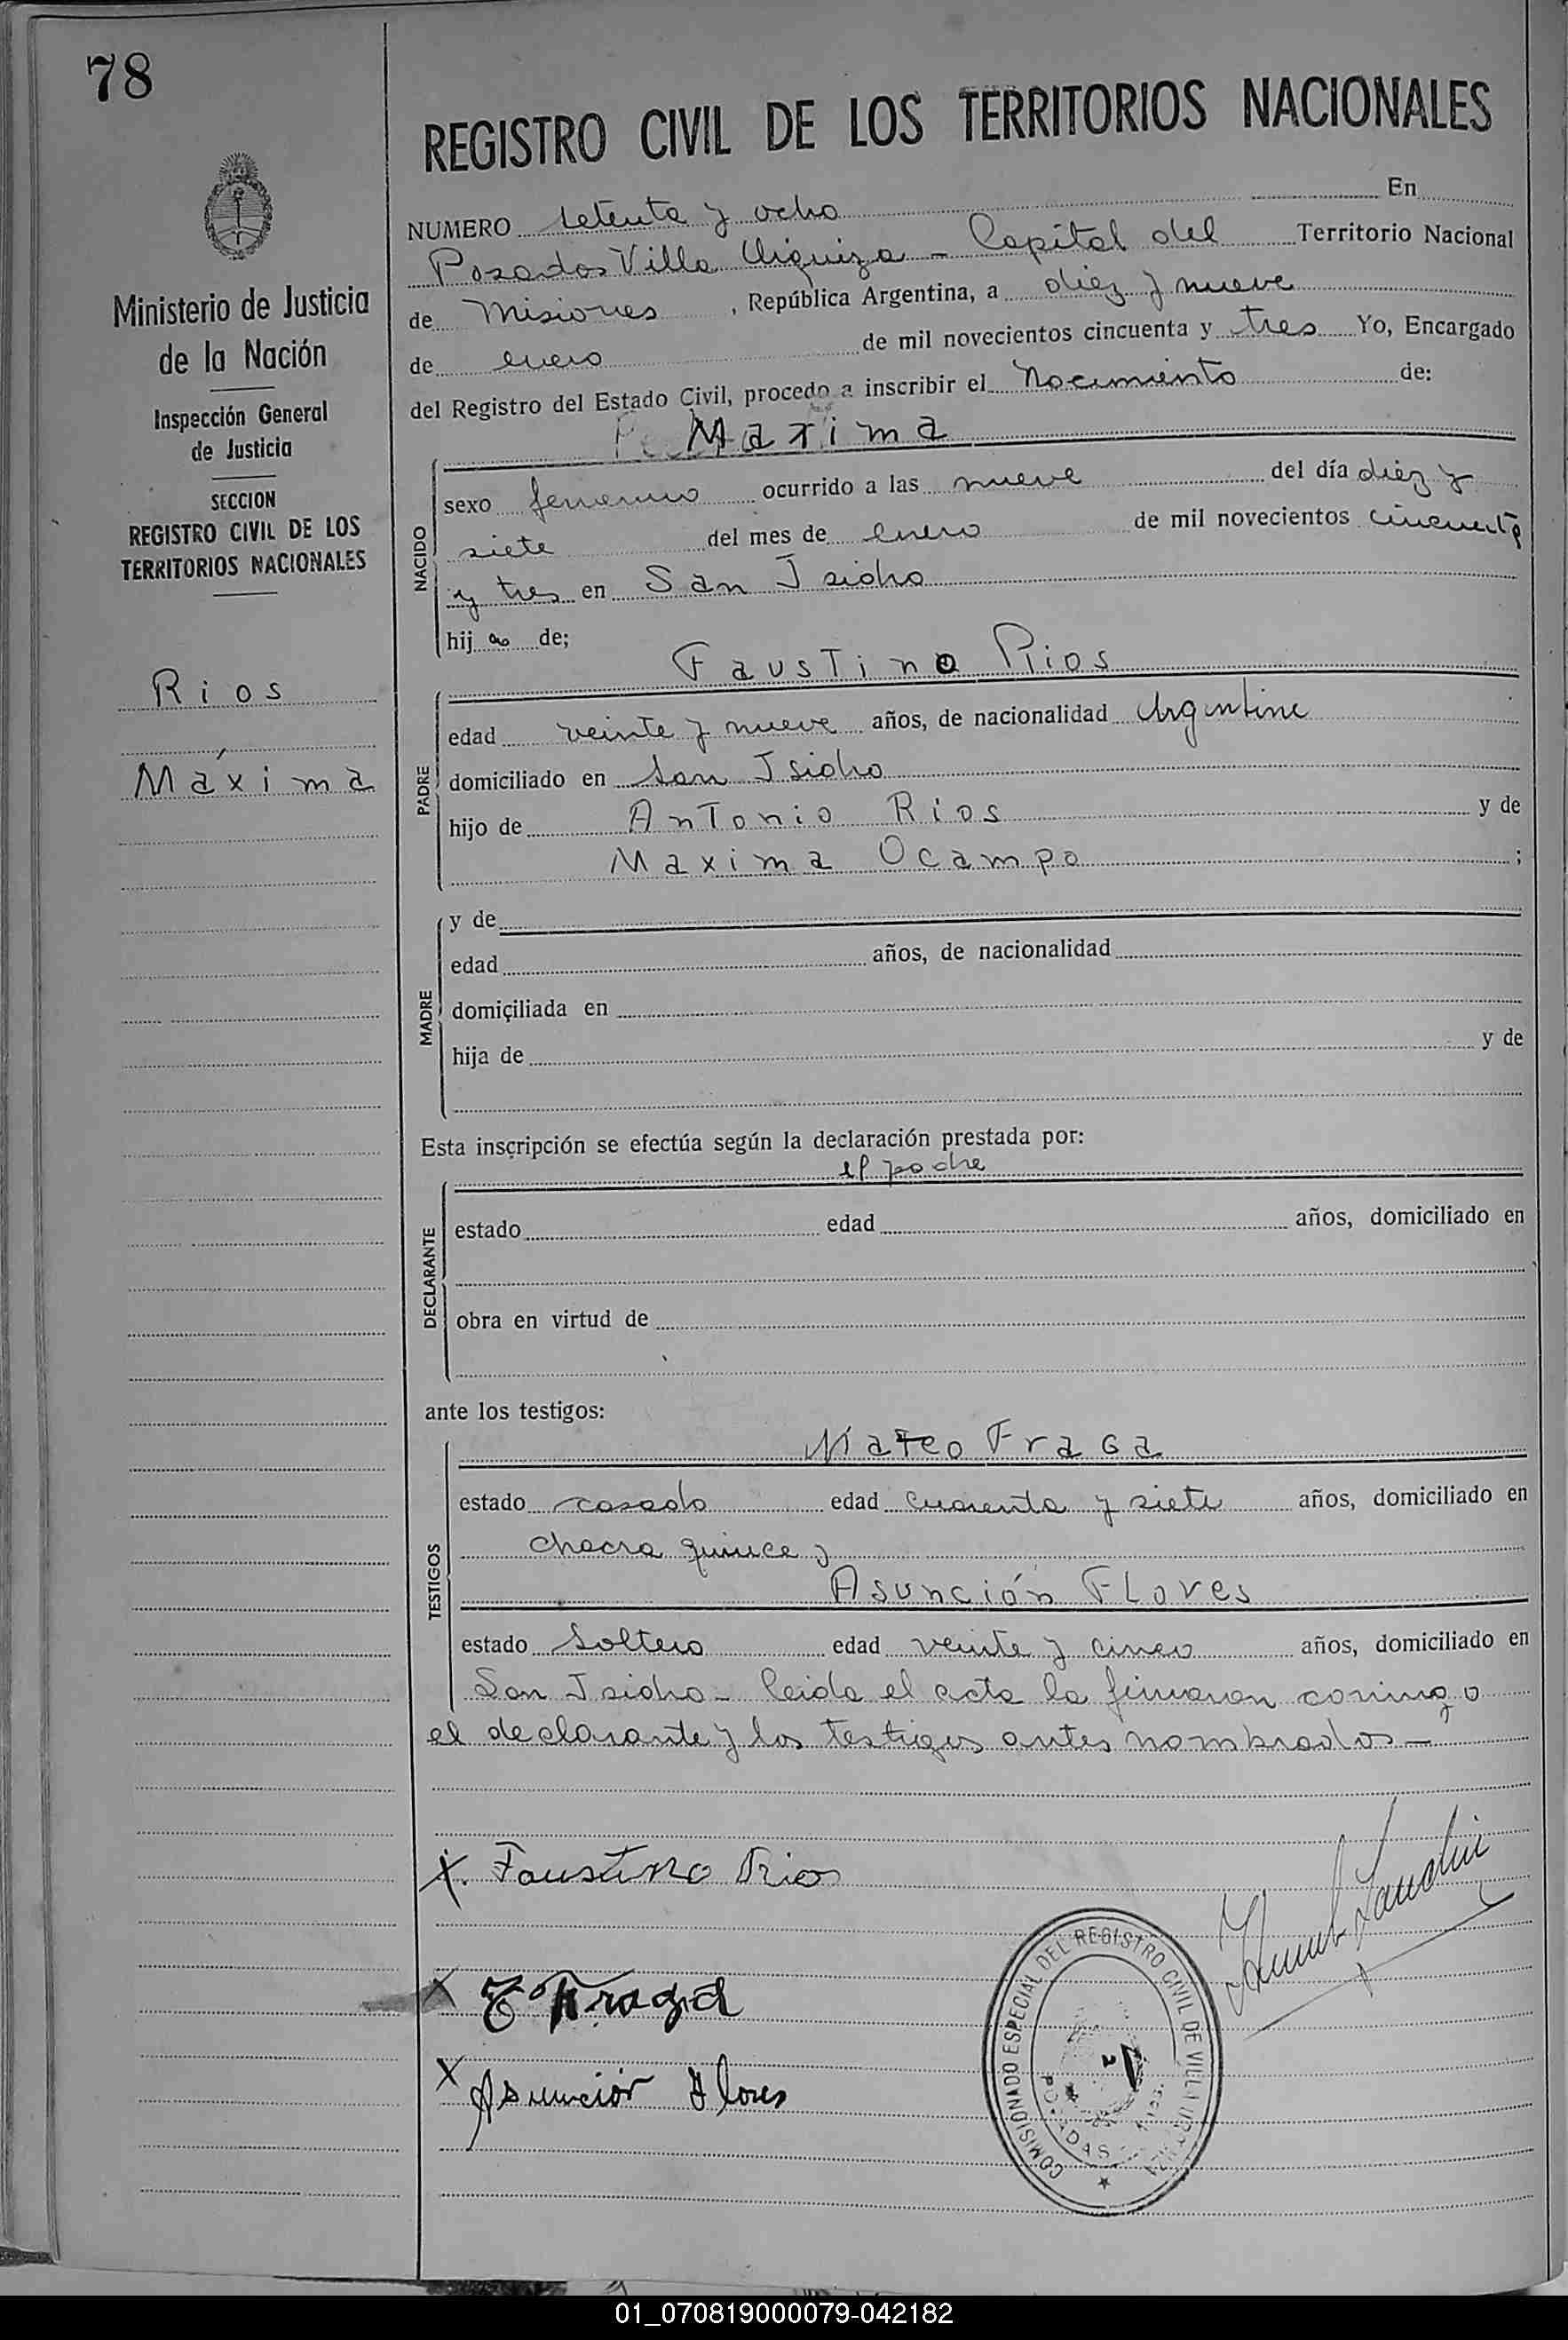 78
REGISTRO CIVIL DE LOS TERRITORIOS NACIONALES
Ministerio de Justicia
de la Nación
Inspección General
de Justicia
SECCION
REGISTRO CIVIL DE LOS
TERRITORIOS NACIONALES
Rios
Máxima
NUMERO setenta y ocho En
Posadas Villa Urquiza - Capital del Territorio Nacional
de Misiones, República Argentina, a diez y nueve
de enero de mil novecientos cincuenta y tres Yo, Encargado
del Registro del Estado Civil, procedo a inscribir el Nacimiento de:
Maxima
NACIDO
sexo femenino ocurrido a las nueve del día diez y
siete del mes de enero de mil novecientos cincuenta
y tres en San Isidro
hij a de;
Faustino Rios
PADRE
edad veinte y nueve años, de nacionalidad Argentina
domiciliado en San Isidro
hijo de Antonio Rios y de
Maxima Ocampo ;
MADRE
y de
edad años, de nacionalidad
domiciliada en
hija de y de
Esta inscripción se efectúa según la declaración prestada por:
el padre
DECLARANTE
estado edad años, domiciliado en
obra en virtud de
ante los testigos:
Mateo Fraga
TESTIGOS
estado casado edad cuarenta y siete años, domiciliado en
chacra quince y
Asunción Flores
estado soltero edad veinte y cinco años, domiciliado en
San Isidro - leida el acta la firmaron conmigo
el declarante y los testigos antes nombrados -
X. Faustino Rios
X Fraga
X Asunción Flores
COMISIONADO ESPECIAL DEL REGISTRO CIVIL DE VILLA URQUIZA
POSADAS
01_070819000079-042182